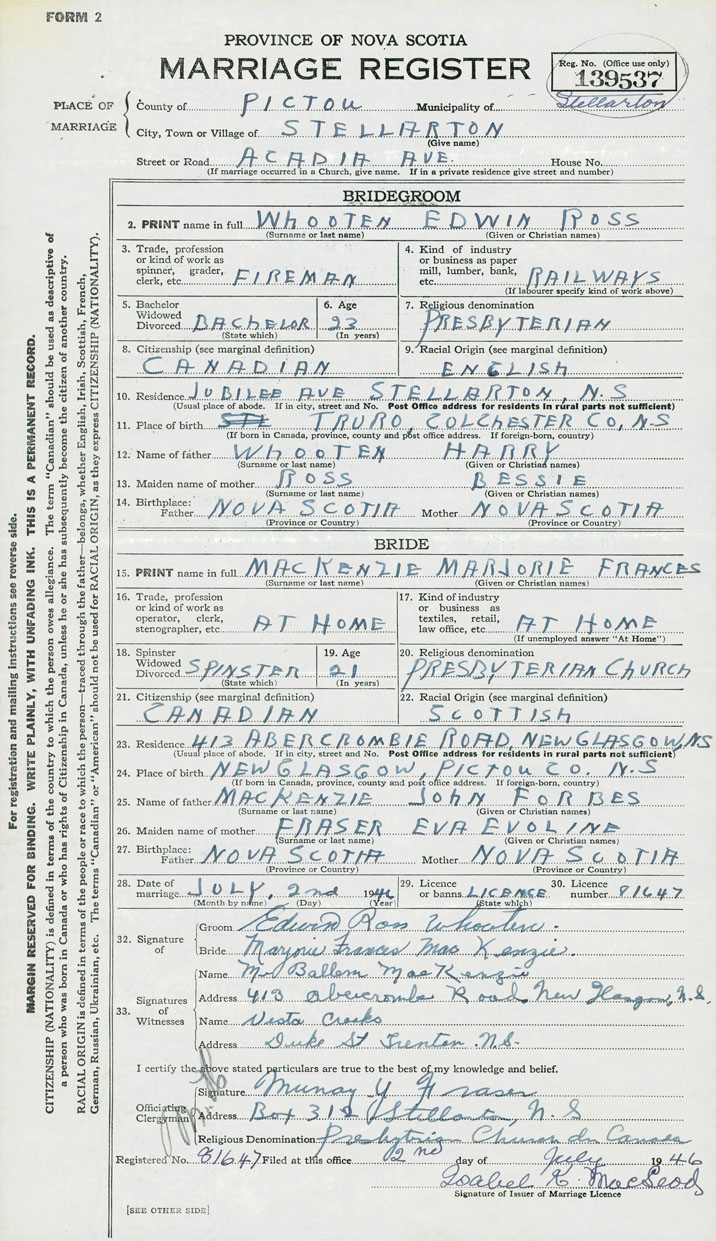 FORM 2
PROVINCE OF NOVA SCOTIA
MARRIAGE REGISTER
Reg. No. (Office use only)
139537
PLACE OF MARRIAGE
County of PICTOU Municipality of Stellarton
City, Town or Village of STELLARTON
(Give name)
Street or Road ACADIA AVE. House No.
(If marriage occurred in a Church, give name. If in a private residence give street and number)
BRIDEGROOM
2. PRINT name in full WHOOTEN EDWIN ROSS
(Surname or last name) (Given or Christian names)
3. Trade, profession or kind of work as spinner, grader, clerk, etc. FIREMAN
4. Kind of industry or business as paper mill, lumber, bank, etc. RAILWAYS
(If labourer specify kind of work above)
5. Bachelor Widowed Divorced BACHELOR
(State which)
6. Age 23
(In years)
7. Religious denomination
PRESBYTERIAN
8. Citizenship (see marginal definition)
CANADIAN
9. Racial Origin (see marginal definition)
ENGLISH
10. Residence JUBILEE AVE STELLARTON, N.S
(Usual place of abode. If in city, street and No. Post Office address for residents in rural parts not sufficient)
11. Place of birth TRURO, COLCHESTER CO, N.S
(If born in Canada, province, county and post office address. If foreign-born, country)
12. Name of father WHOOTEN HARRY
(Surname or last name) (Given or Christian names)
13. Maiden name of mother ROSS BESSIE
(Surname or last name) (Given or Christian names)
14. Birthplace: Father NOVA SCOTIA Mother NOVA SCOTIA
(Province or Country) (Province or Country)
BRIDE
15. PRINT name in full MACKENZIE MARJORIE FRANCES
(Surname or last name) (Given or Christian names)
16. Trade, profession or kind of work as operator, clerk, stenographer, etc. AT HOME
17. Kind of industry or business as textiles, retail, law office, etc. AT HOME
(If unemployed answer "At Home")
18. Spinster Widowed Divorced SPINSTER
(State which)
19. Age 21
(In years)
20. Religious denomination
PRESBYTERIAN CHURCH
21. Citizenship (see marginal definition)
CANADIAN
22. Racial Origin (see marginal definition)
SCOTTISH
23. Residence 413 ABERCROMBIE ROAD, NEW GLASGOW, NS
(Usual place of abode. If in city, street and No. Post Office address for residents in rural parts not sufficient)
24. Place of birth NEW GLASGOW, PICTOU CO. N.S
(If born in Canada, province, county and post office address. If foreign-born, country)
25. Name of father MACKENZIE JOHN FORBES
(Surname or last name) (Given or Christian names)
26. Maiden name of mother FRASER EVA EVOLINE
(Surname or last name) (Given or Christian names)
27. Birthplace: Father NOVA SCOTIA Mother NOVA SCOTIA
(Province or Country) (Province or Country)
28. Date of marriage JULY, 2nd 1946
(Month by name) (Day) (Year)
29. Licence or banns LICENCE
(State which)
30. Licence number 81647
32. Signature of
Groom Edwin Ross Whooten.
Bride Marjorie Frances MacKenzie.
33. Signatures of Witnesses
Name Ballem MacKenzie
Address 413 Abercrombe Road, New Glasgow, N.S.
Name Vesta
Address Duke St Trenton N.S.
I certify the above stated particulars are true to the best of my knowledge and belief.
Officiating Clergyman
Signature Murray Y Fraser
Address Box 312 Stellarton, N.S
Religious Denomination Presbytrian Church in Canada
Registered No. 81647 Filed at this office 2nd day of July 1946
Isabel K. MacLeod
Signature of Issuer of Marriage Licence
[SEE OTHER SIDE]
For registration and mailing instructions see reverse side.
MARGIN RESERVED FOR BINDING. WRITE PLAINLY, WITH UNFADING INK. THIS IS A PERMANENT RECORD.
CITIZENSHIP (NATIONALITY) is defined in terms of the country to which the person owes allegiance. The term "Canadian" should be used as descriptive of
a person who was born in Canada or who has rights of Citizenship in Canada, unless he or she has subsequently become the citizen of another country.
RACIAL ORIGIN is defined in terms of the people or race to which the person—traced through the father—belongs, whether English, Irish, Scottish, French,
German, Russian, Ukrainian, etc. The terms "Canadian" or "American" should not be used for RACIAL ORIGIN, as they express CITIZENSHIP (NATIONALITY).